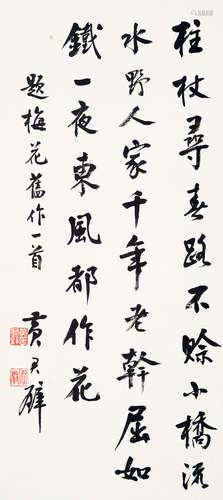 柱杖尋春路不賒小橋流
水野人家千年老幹屈如
鐵一夜東風都作花
題梅花舊作一首
黃君璧